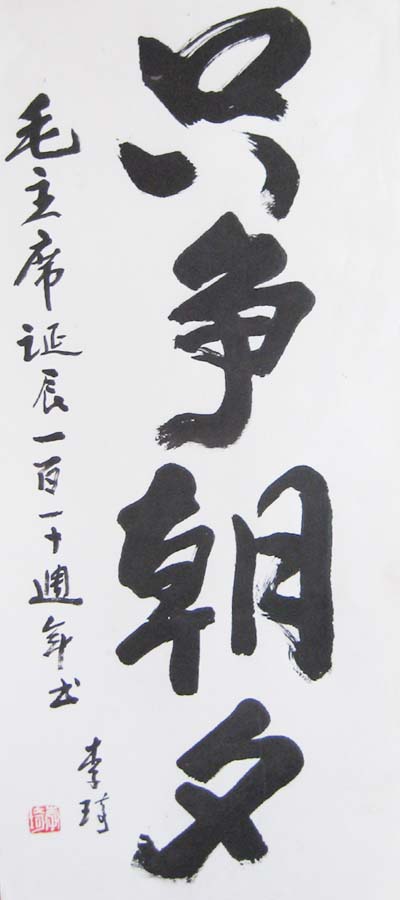 只争朝夕
毛主席诞辰一百一十週年书
李琦